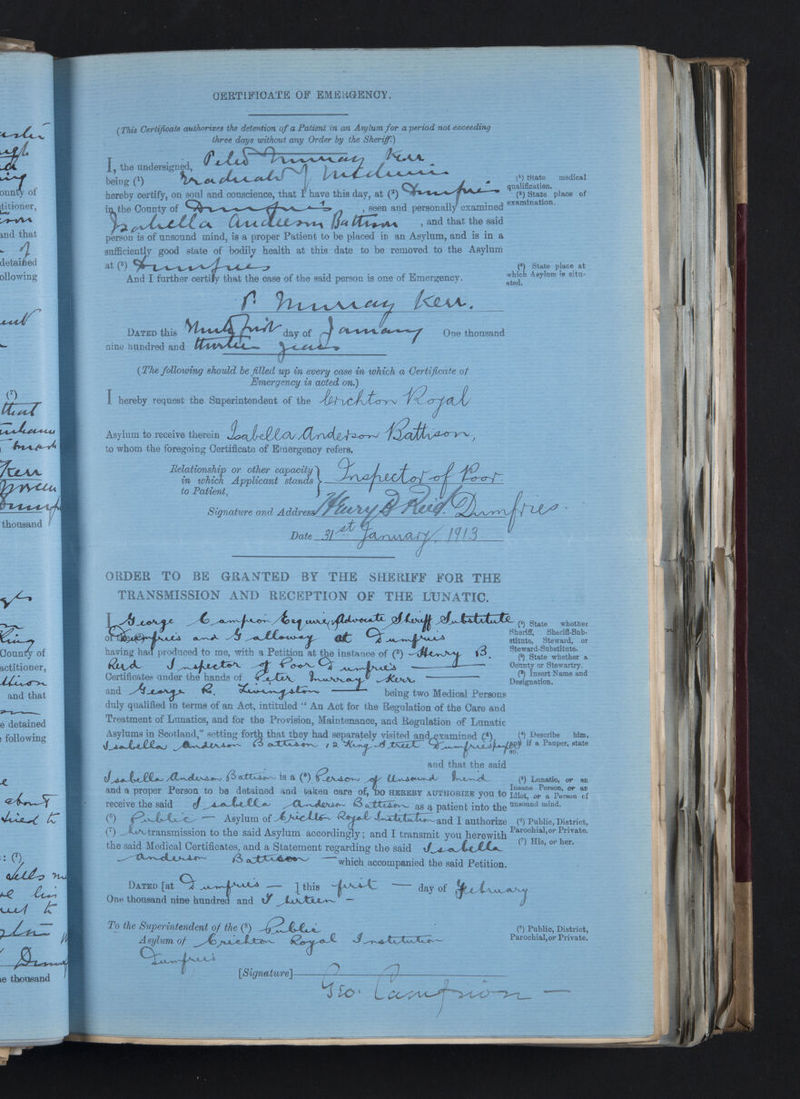 CERTIFICATE OF EMERGENCY.
(This Certificate authorizes the detention of a Patient in an Asylum for a period not exceeding
three days without any Order by the Sheriff.)
I, the undersigned, Peter Murray Kerr
being (¹) Graduate of Medicine
hereby certify, on soul and conscience, that I have this day, at (²) Dumfries
in the County of Dumfries, seen and personally examined
Isabella Anderson Battison, and that the said
person is of unsound mind, is a proper Patient to be placed in an Asylum, and is in a
sufficiently good state of bodily health at this date to be removed to the Asylum
at (³) Dumfries
And I further certify that the case of the said person is one of Emergency.
(¹) State medical
qualification.
(²) State place of
examination.
(³) State place at
which Asylum is situ-
ated.
P. Murray Kerr.
DATED this Thirty first day of January One thousand
nine hundred and thirteen years
(The following should be filled up in every case in which a Certificate of
Emergency is acted on.)
I hereby request the Superintendent of the Crichton Royal
Asylum to receive therein Isabella Anderson Battison,
to whom the foregoing Certificate of Emergency refers.
Relationship or other capacity
in which Applicant stands
to Patient,
Inspector of Poor
Signature and Address Henry B Reid Dumfries.
Date 31st January, 1913
ORDER TO BE GRANTED BY THE SHERIFF FOR THE
TRANSMISSION AND RECEPTION OF THE LUNATIC.
I, George Campion Esquire, Advocate Sheriff Substitute
of Dumfries and Galloway at Dumfries
having had produced to me, with a Petition at the instance of (³) Henry B.
Reid Inspector of Poor Dumfries
Certificates under the hands of Peter Murray Kerr
and George R. Livingston being two Medical Persons
duly qualified in terms of an Act, intituled "An Act for the Regulation of the Care and
Treatment of Lunatics, and for the Provision, Maintenance, and Regulation of Lunatic
Asylums in Scotland," setting forth that they had separately visited and examined (⁴)
Isabella Anderson Battison 12 King Street Dumfries pauper
and that the said
Isabella Anderson Battison is a (⁵) Person of Unsound Mind
and a proper Person to be detained and taken care of, DO HEREBY AUTHORIZE you to
receive the said Isabella Anderson Battison as a patient into the
(⁶) Public Asylum of Crichton Royal Institution and I authorize
(⁷) her transmission to the said Asylum accordingly; and I transmit you herewith
the said Medical Certificates, and a Statement regarding the said Isabella
Anderson Battison which accompanied the said Petition.
(¹) State whether
Sheriff, Sheriff-Sub-
stitute, Steward, or
Steward-Substitute.
(²) State whether a
County or Stewartry.
(³) Insert Name and
Designation.
(⁴) Describe him,
and if a Pauper, state
so.
(⁵) Lunatic, or an
Insane Person, or an
Idiot, or a Person of
unsound mind.
(⁶) Public, District,
Parochial, or Private.
(⁷) His, or her.
DATED [at Dumfries ] this first day of February
One thousand nine hundred and Thirteen
To the Superintendent of the (⁶) Public
Asylum of Crichton Royal Institution
Dumfries
(⁶) Public, District,
Parochial, or Private.
[Signature]
Geo. Campion
ounty of
and that
detained
ollowing
Kerr
thousand
County of
and that
e detained
following
e thousand